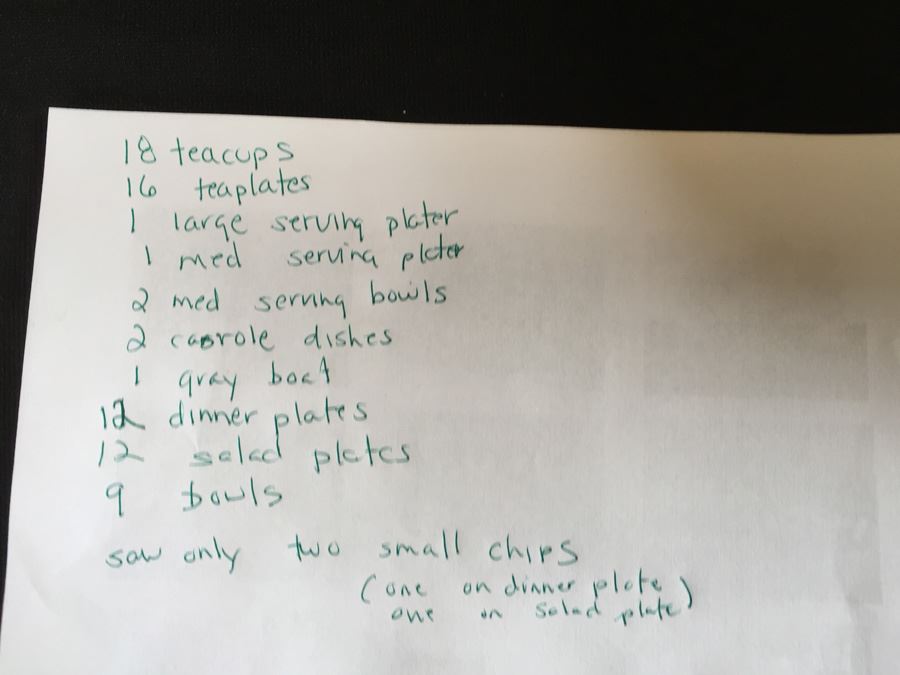 18 teacups
16 teaplates
1 large serving plater
1 med serving plater
2 med serving bowls
2 casrole dishes
1 gray boat
12 dinner plates
12 salad plates
9 bowls
saw only two small chips
(one on dinner plate)
one on salad plate